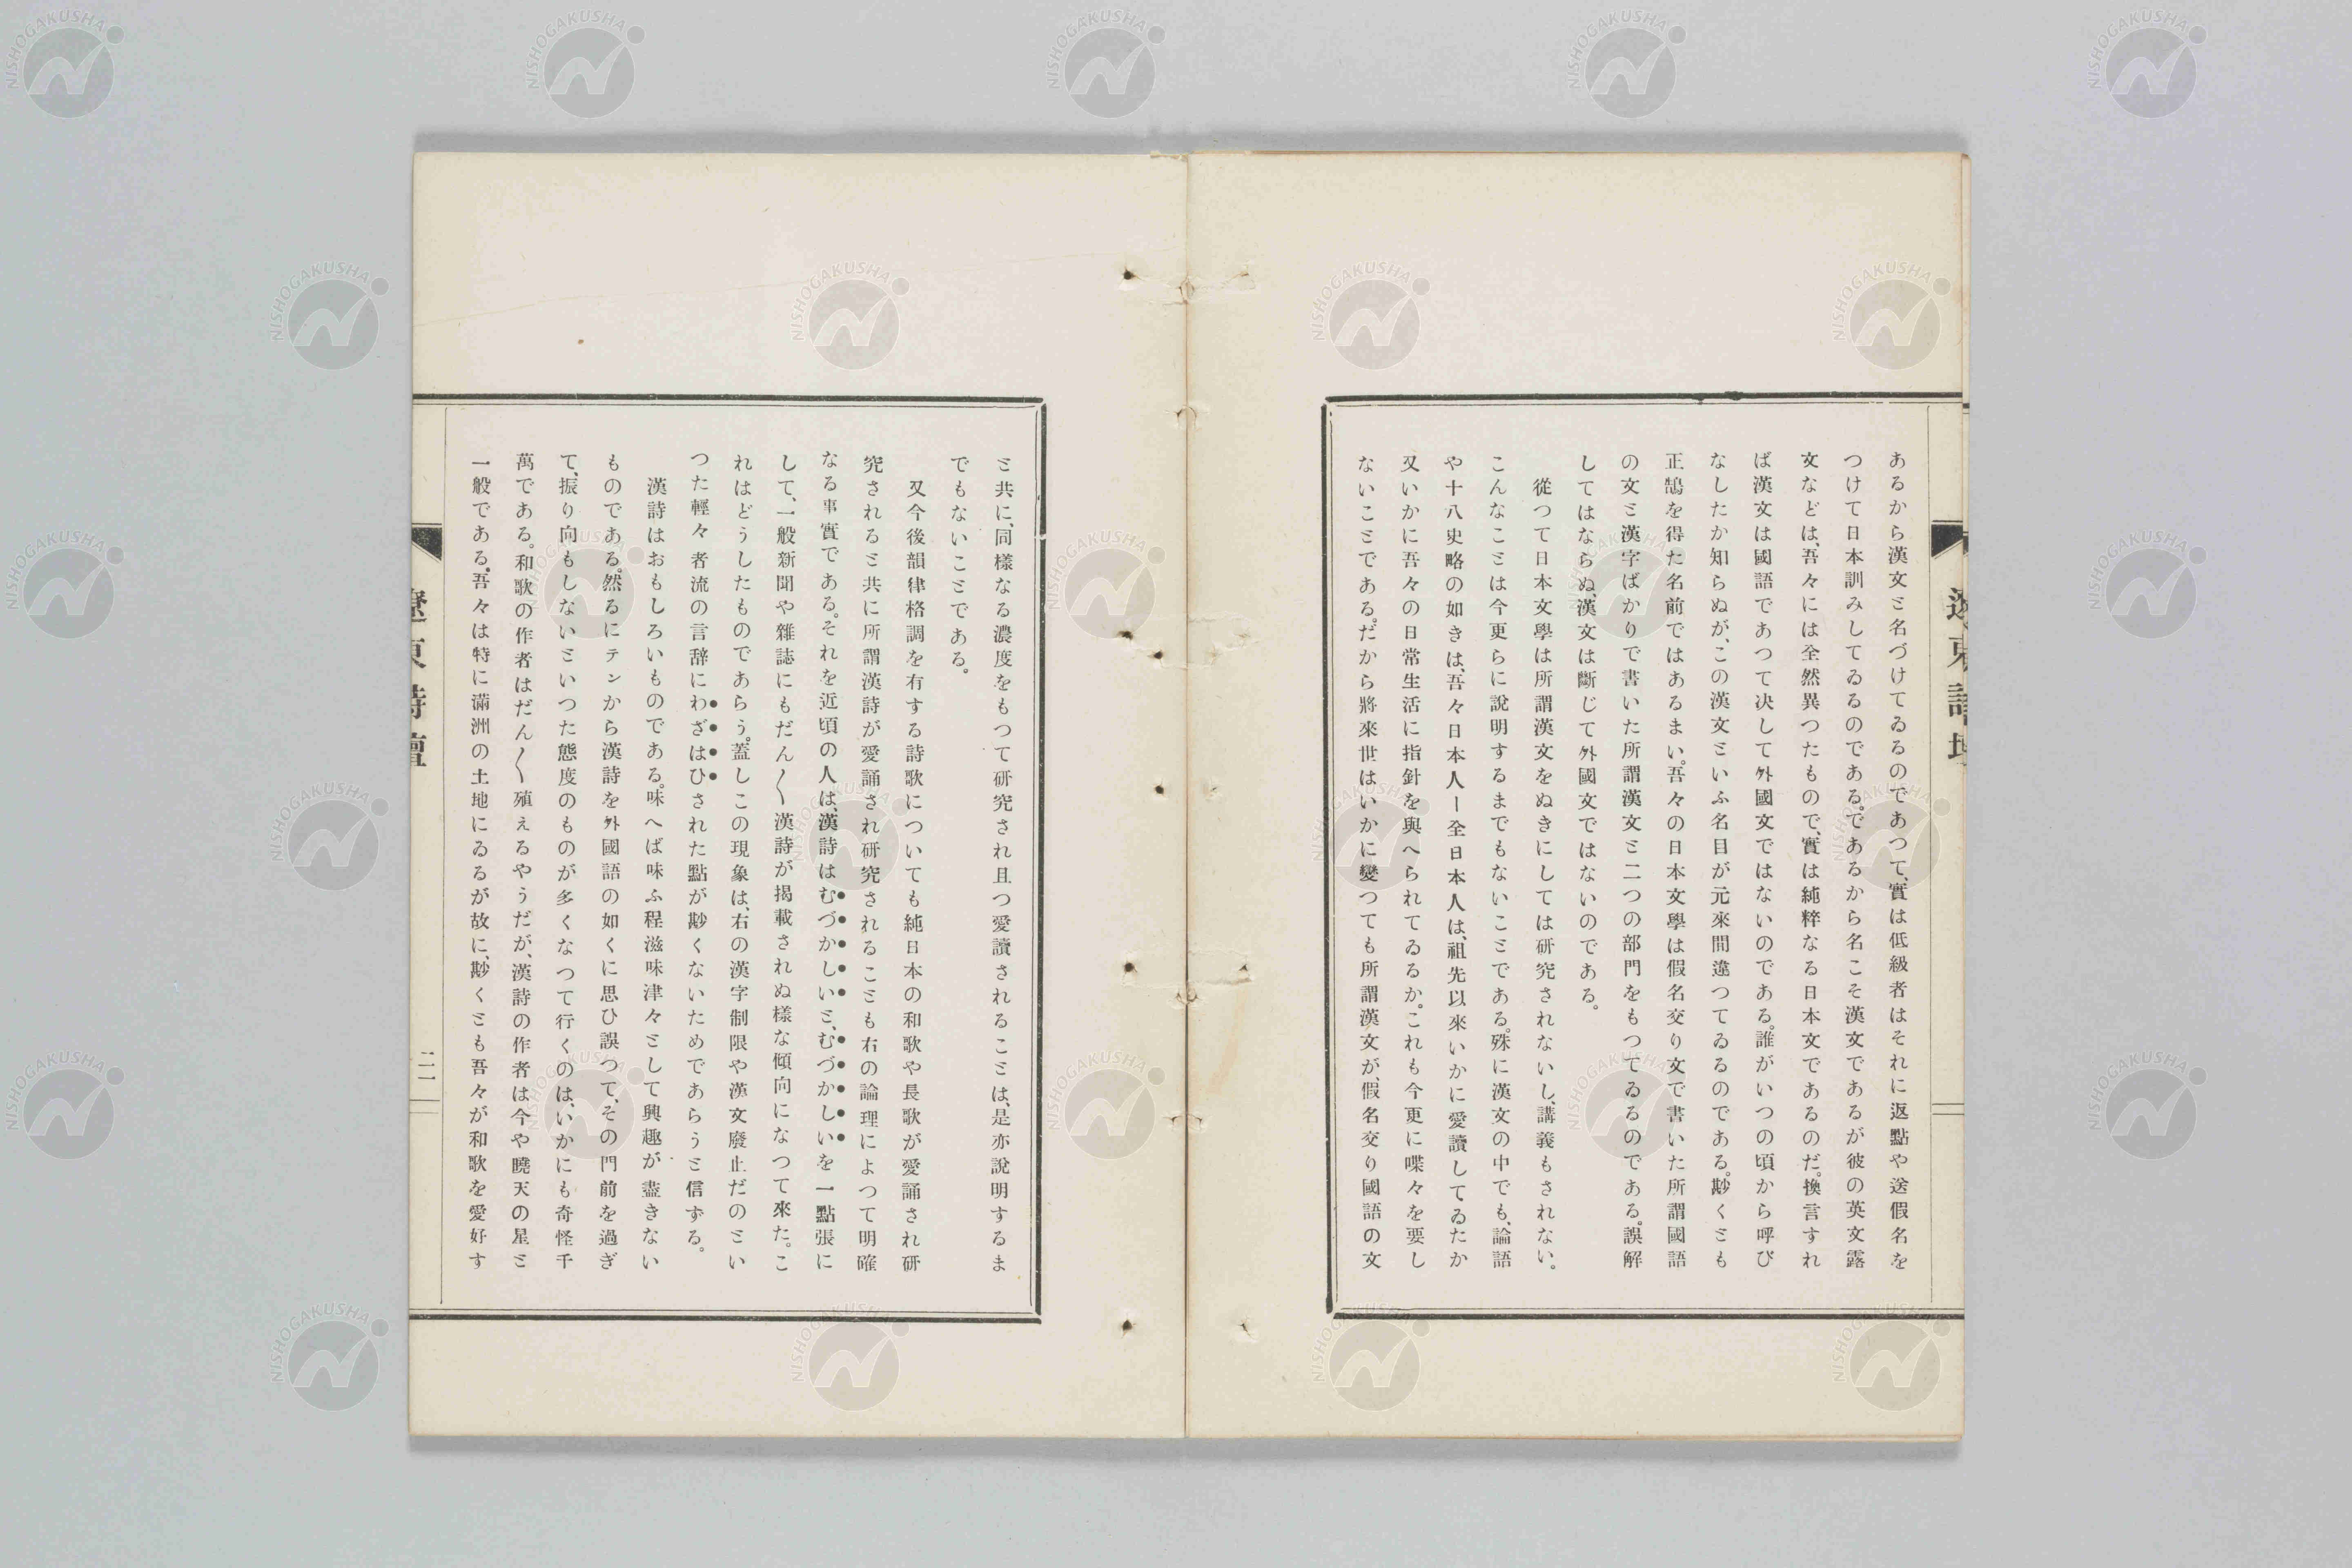 あるから漢文と名づけてゐるのであつて、實は低級者はそれに返點や送假名を
つけて日本訓みしてゐるのである。であるから名こそ漢文であるが彼の英文露
文などは、吾々には全然異つたもので、實は純粹なる日本文であるのだ。換言すれ
ば漢文は國語であつて决して外國文ではないのである。誰がいつの頃から呼び
なしたか知らぬが、この漢文といふ名目が元來間違つてゐるのである。尠くとも
正鵠を得た名前ではあるまい。吾々の日本文學は假名交り文で書いた所謂國語
の文と漢字ばかりで書いた所謂漢文と二つの部門をもつてゐるのである。誤解
してはならぬ、漢文は斷じて外國文ではないのである。
從つて日本文學は所謂漢文をぬきにしては研究されないし、講義もされない。
こんなことは今更らに說明するまでもないことである。殊に漢文の中でも、論語
や十八史略の如きは、吾々日本人ー全日本人は、祖先以來いかに愛讀してゐたか
又いかに吾々の日常生活に指針を與へられてゐるか。これも今更に喋々を要し
ないことである。だから將來世はいかに變つても所謂漢文が、假名交り國語の文
遼東詩壇
と共に、同樣なる濃度をもつて研究され且つ愛讀されることは、是亦說明するま
でもないことである。
又今後韻律格調を有する詩歌についても純日本の和歌や長歌が愛誦され研
究されると共に所謂漢詩が愛誦され研究されることも右の論理によつて明確
なる事實である。それを近頃の人は、漢詩はむづかしいと、むづかしいを一點張に
して、一般新聞や雜誌にもだん〱漢詩が揭載されぬ樣な傾向になつて來た。こ
れはどうしたものであらう。蓋しこの現象は、右の漢字制限や漢文廢止だのとい
つた輕々者流の言辞にわざはひされた點が尠くないためであらうと信ずる。
漢詩はおもしろいものである。味へば味ふ程滋味津々として興趣が盡きない
ものである。然るにテンから漢詩を外國語の如くに思ひ誤つて、その門前を過ぎ
て、振り向もしないといつた態度のものが多くなつて行くのは、いかにも奇怪千
萬である。和歌の作者はだん〱殖ぇるやうだが、漢詩の作者は今や曉天の星と
一般である。吾々は特に滿洲の土地にゐるが故に、尠くとも吾々が和歌を愛好す
遼東詩壇
二一